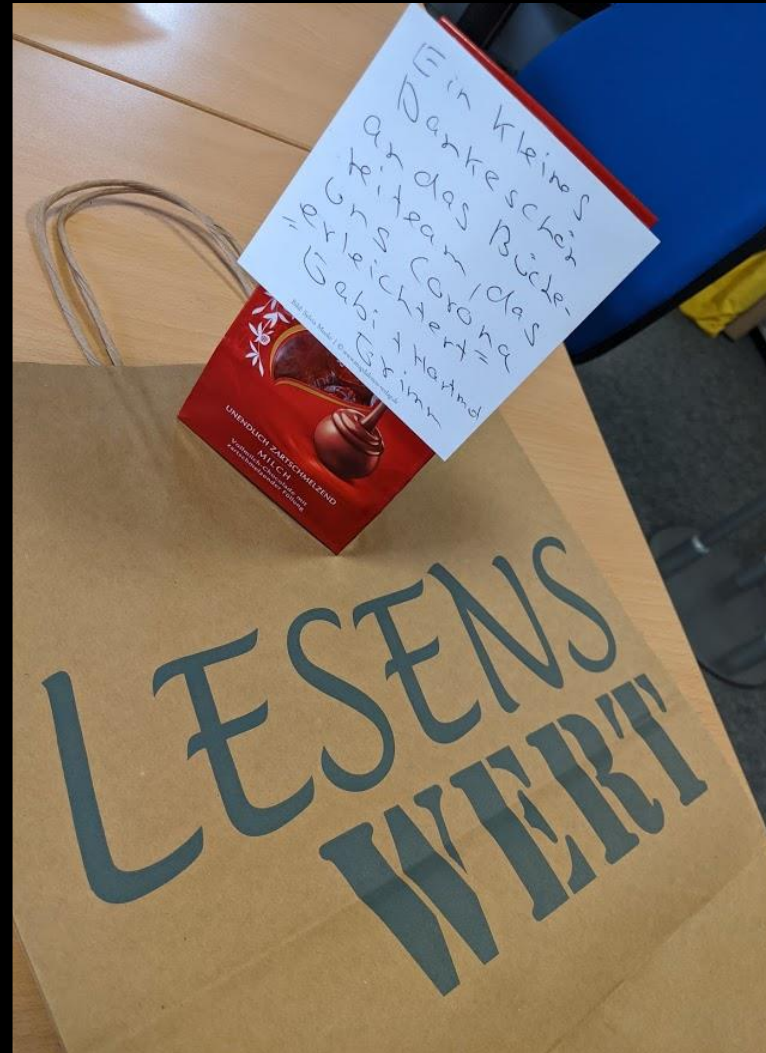 Ein kleines
Dankeschön
an das Büche-
reiteam, das
uns Corona
=erleichtert=
Gabi + Hartmd
Grimm
UNENDLICH ZARTSCHMELZEND
MILCH
Vollmilch-Chocolade mit
zartschmelzender Füllung
LESENS
WERT